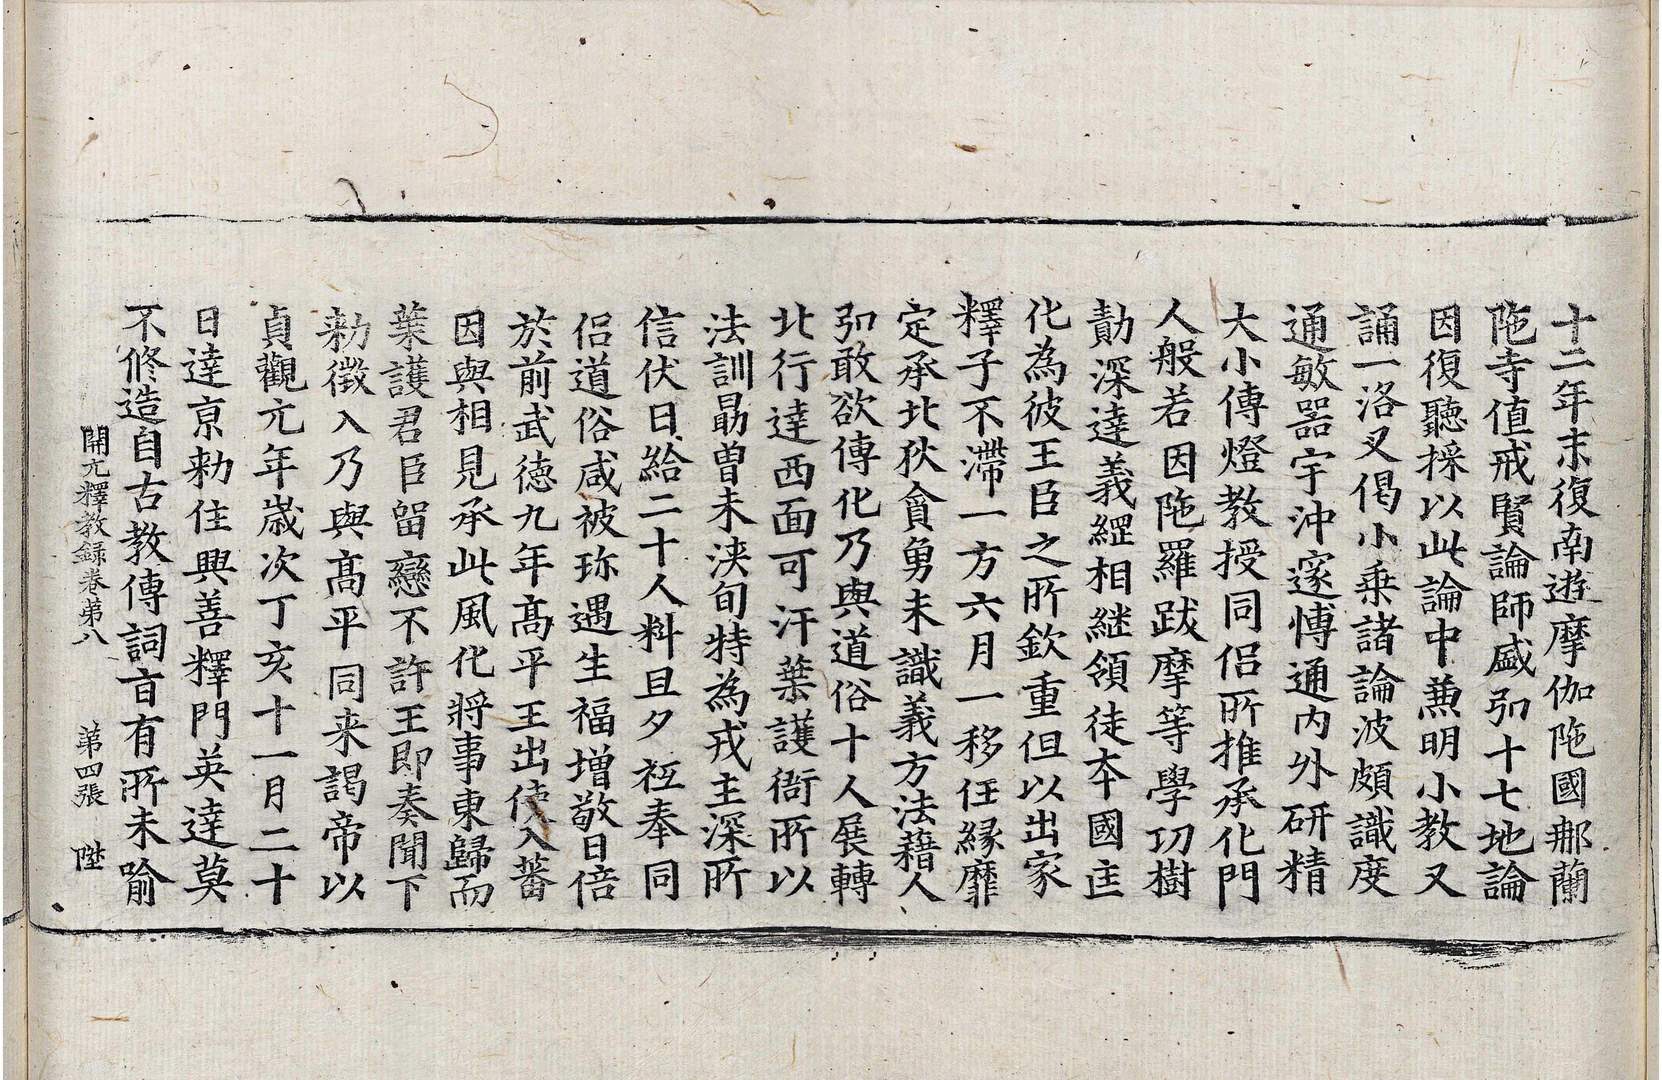 十二年末復南遊摩伽陁國那蘭
陁寺值戒賢論師盛弘十七地論
因復聽採以此論中兼明小教又
誦一洛叉偈小乘諸論波頗識度
通敏器宇沖邃博通内外研精
大小傳燈教授同侣所推承化門
人般若因陁羅跋摩等學功樹
勣深達義綱相繼領徒本國匡
化為彼王臣之所欽重但以出家
釋子不滯一方六月一移任緣靡
定承北狄貪勇未識義方法藉人
弘敢欲傳化乃與道俗十人展轉
北行達西面可汗葉護衙所以
法訓勗曾未浹旬特為戎主深所
信伏日給二十人料旦夕祗奉同
侣道俗咸被珎遇生福增敬日倍
於前武德九年高平王出使入蕃
因與相見承此風化將事東歸而
葉護君臣留戀不許王即奏聞下
勑徵入乃與高平同来謁帝以
貞觀元年歲次丁亥十一月二十
日達京勑住興善釋門英達莫
不修造自古教傳詞旨有所未喻
開元釋教録卷第八 第四張 陞